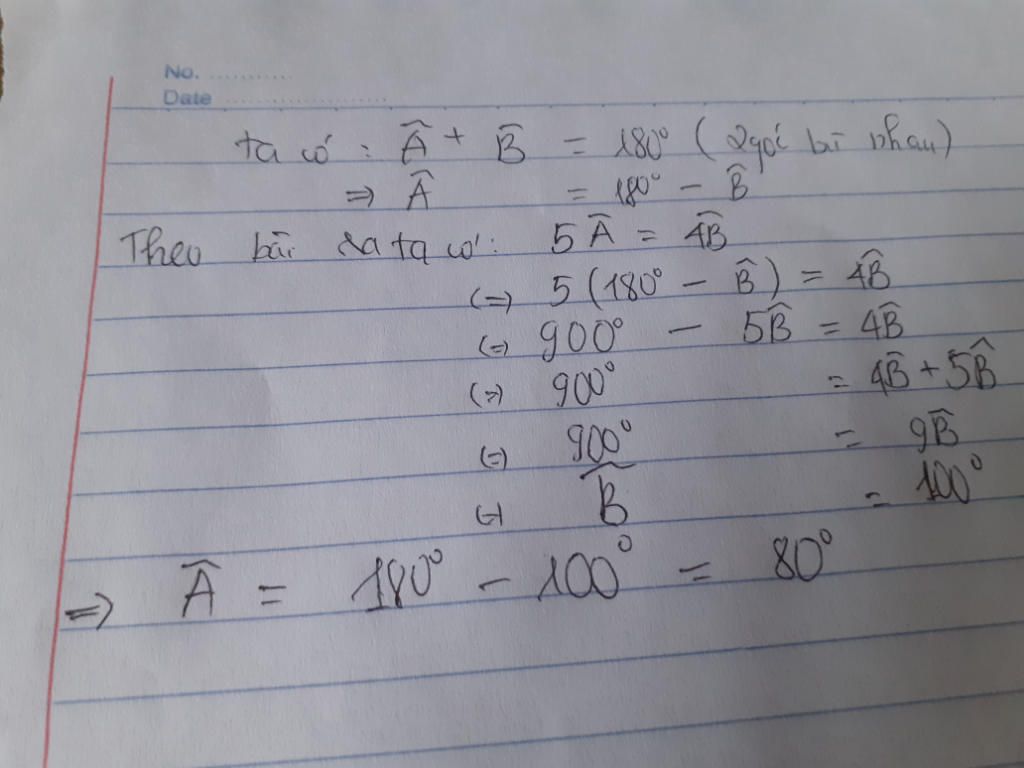 No. ............
Date .......................
ta có : Â + B̂ = 180° ( 2 góc bù nhau)
=> Â = 180° - B̂
Theo bài ra ta có: 5Â = 4B̂
(=) 5 (180° - B̂ ) = 4B̂
(=) 900° - 5B̂ = 4B̂
(=) 900° = 4B̂ + 5B̂
(=) 900° = 9B̂
(=) B̂ = 100°
=> Â = 180° - 100° = 80°